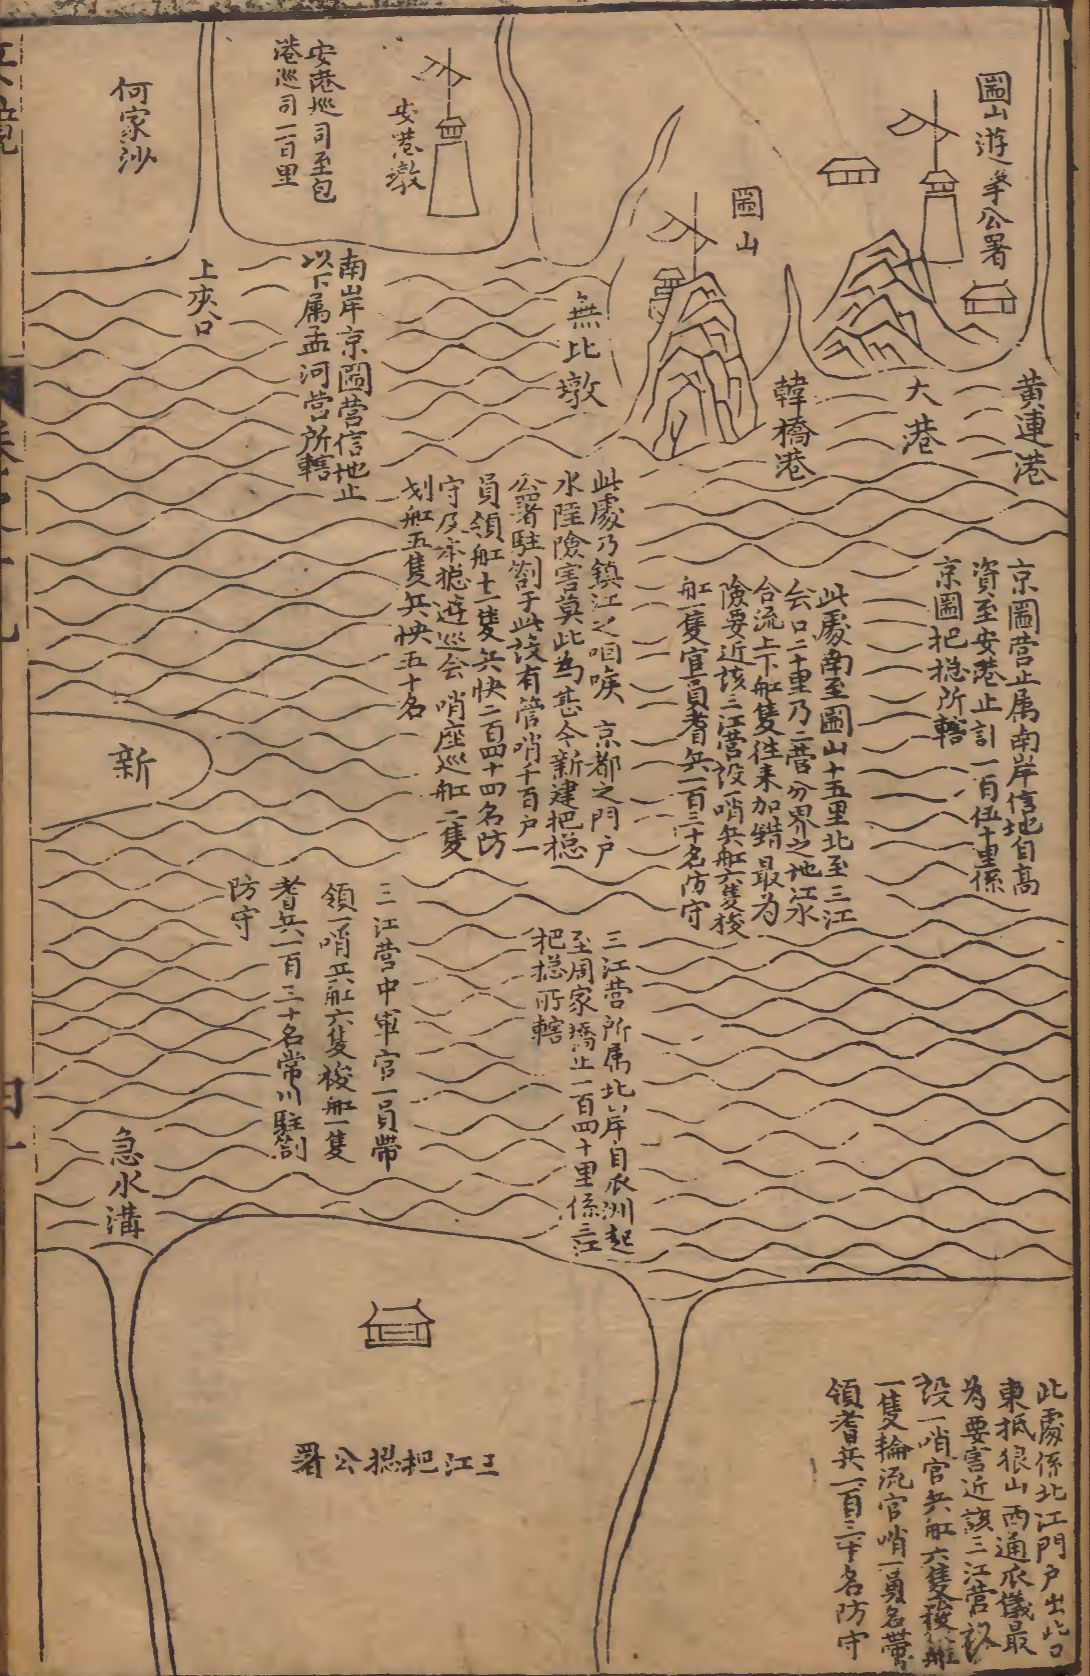 圌山遊擊公署
黃連港
大港
韓橋港
圌山
無比墩
安港墩
安港巡司至包
港巡司一百里
何家沙
上夾口
南岸京圌營信地止
以下属孟河營所轄
京圌營止属南岸信地自高
資至安港止計一百伍十里係
京圌把摠所轄
此處南至圌山十五里北至三江
会口二十里乃二營分界之地江水
合流上下舡隻徃来加戅最为
險要近該三江營設一哨兵舡六隻梭
舡一隻官員耆兵一百三十名防守
此處乃鎮江之咽喉 京都之門户
水陸險害莫此為甚今新建把摠
公署駐劄于此設有管哨千百户一
員領舡十二隻兵快二百四十四名防
守及本摠遊巡会哨座巡舡二隻
划舡五隻兵快五十名
新
三江營所属北岸自瓜洲起
至周家橋止一百四十里係三江
把摠所轄
三江營中軍官一員帶
領一哨兵舡六隻梭舡一隻
耆兵一百三十名常川駐劄
防守
急水溝
三江把摠公署
此處係北江門户出此口
東抵狼山西通瓜儀最
為要害近該三江營
設一哨官兵舡六隻梭舡
一隻輪流官哨一員名帶
領耆兵一百三十名防守